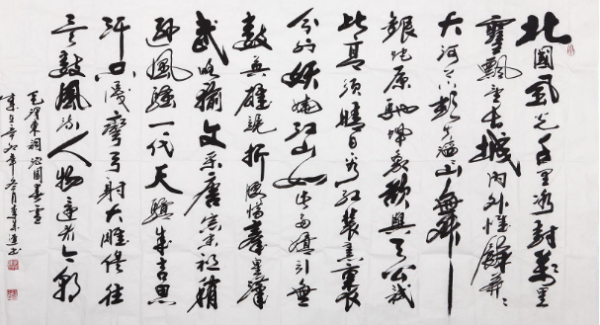 北國風光千里冰封萬里
雪飄望長城內外惟餘莽〻
大河上下頓失滔〻山舞
銀蛇原馳蠟象欲與天公試
比高須晴日看紅裝素裹
分外妖嬈江山如此多嬌引無
數英雄競折腰惜秦皇漢
武略輸文采唐宗宋祖稍
遜風騷一代天驕成吉思
汗只識彎弓射大雕俱往
矣數風流人物還看今朝
毛澤東詞沁園春雪
年冬月